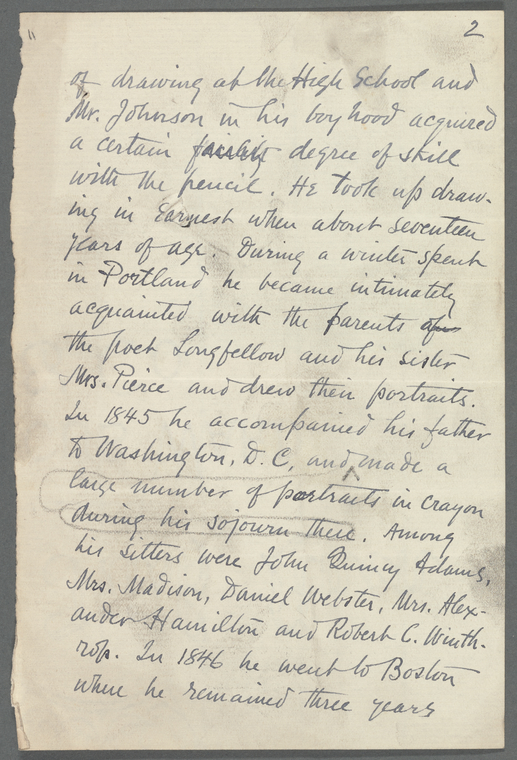 2
of drawing at the High School and
Mr. Johnson in his boyhood acquired
a certain degree of skill
with the pencil. He took up draw-
ing in earnest when about seventeen
years of age. During a winter spent
in Portland he became intimately
acquainted with the parents of
the poet Longfellow and his sister
Mrs. Pierce and drew their portraits.
In 1845 he accompanied his father
to Washington, D.C, and made a
large number of portraits in crayon
during his sojourn there. Among
his sitters were John Quincy Adams,
Mrs. Madison, Daniel Webster, Mrs. Alex-
ander Hamilton and Robert C. Winth-
rop. In 1846 he went to Boston
where he remained three years